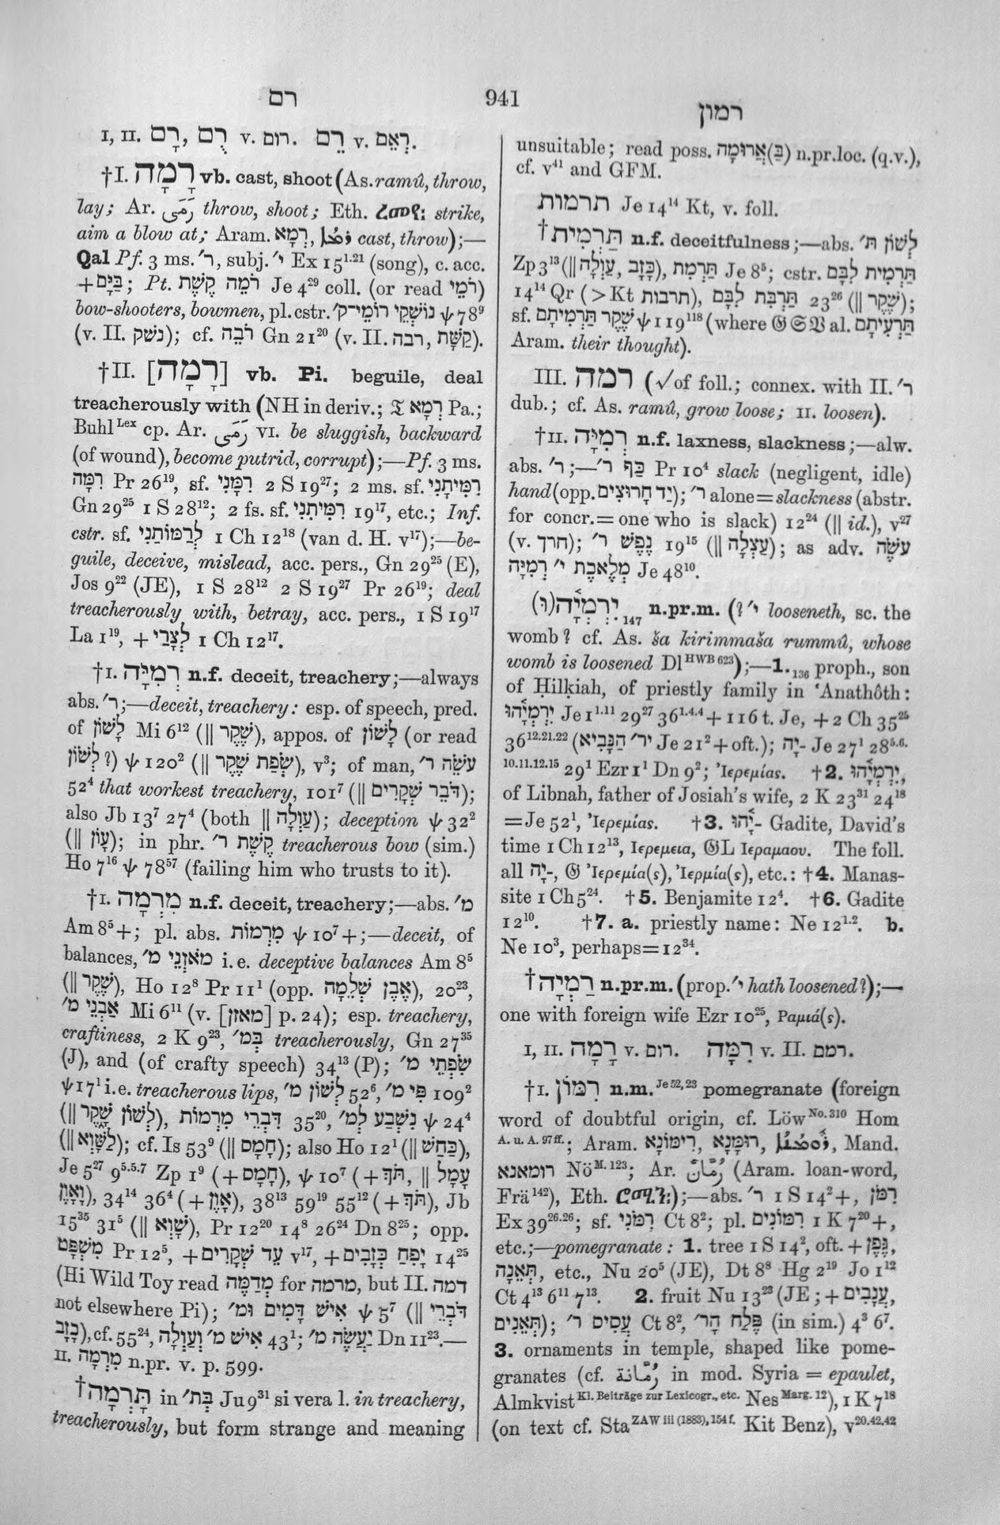 רם
941
רמון
I, II. רָם, רֻם v. רום. רֵם v. רְאֵם.
†I. רָמָה vb. cast, shoot (As. ramû, throw,
lay; Ar. رَمَى throw, shoot; Eth. strike,
aim a blow at; Aram. רְמָא, cast, throw);—
Qal Pf. 3 ms. ר׳, subj. י׳ Ex 15 1.21 (song), c. acc.
+בַּיָּם; Pt. רֹמֵה קֶשֶׁת Je 4 29 coll. (or read רֹמֵי)
bow-shooters, bowmen, pl. cstr. נוֹשְׁקֵי רוֹמֵי־ק׳ ψ 78 9
(v. II. נשׁק); cf. רֹבֶה Gn 21 20 (v. II. רבה, קַשָּׁת).
†II. [רָמָה] vb. Pi. beguile, deal
treacherously with (NH in deriv.; 𝔗 רְמָא Pa.;
Buhl Lex cp. Ar. رَمَى VI. be sluggish, backward
(of wound), become putrid, corrupt);—Pf. 3 ms.
רִמָּה Pr 26 19, sf. רִמָּנִי 2 S 19 27; 2 ms. sf. רִמִּיתָנִי
Gn 29 25 1 S 28 12; 2 fs. sf. רִמִּיתִנִי 19 17, etc.; Inf.
cstr. sf. לְרַמּוֹתַנִי 1 Ch 12 18 (van d. H. v 17);—be-
guile, deceive, mislead, acc. pers., Gn 29 25 (E),
Jos 9 22 (JE), 1 S 28 12 2 S 19 27 Pr 26 19; deal
treacherously with, betray, acc. pers., 1 S 19 17
La 1 19, + לְצָרַי 1 Ch 12 17.
†I. רְמִיָּה n.f. deceit, treachery;—always
abs. ר׳;—deceit, treachery: esp. of speech, pred.
of לָשׁוֹן Mi 6 12 (|| שֶׁקֶר), appos. of לָשׁוֹן (or read
לְשׁוֹן?) ψ 120 2 (|| שְׂפַת שֶׁקֶר), v 3; of man, עֹשֵׂה ר׳
52 4 that workest treachery, 101 7 (|| דֹּבֵר שְׁקָרִים);
also Jb 13 7 27 4 (both || עַוְלָה); deception ψ 32 2
(|| עָוֹן); in phr. קֶשֶׁת ר׳ treacherous bow (sim.)
Ho 7 16 ψ 78 57 (failing him who trusts to it).
†I. מִרְמָה n.f. deceit, treachery;—abs. מ׳
Am 8 5+; pl. abs. מִרְמוֹת ψ 10 7+;—deceit, of
balances, מֹאזְנֵי מ׳ i.e. deceptive balances Am 8 5
(|| שֶׁקֶר), Ho 12 8 Pr 11 1 (opp. אֶבֶן שְׁלֵמָה), 20 23,
אַבְנֵי מ׳ Mi 6 11 (v. [מאזן] p. 24); esp. treachery,
craftiness, 2 K 9 23, בְּמ׳ treacherously, Gn 27 35
(J), and (of crafty speech) 34 13 (P); שִׂפְתֵי מ׳
ψ 17 1 i.e. treacherous lips, לְשׁוֹן מ׳ 52 6, פִּי מ׳ 109 2
(|| לְשׁוֹן שֶׁקֶר), דִּבְרֵי מִרְמוֹת 35 20, נִשְׁבַּע לְמ׳ ψ 24 4
(|| לַשָּׁוְא); cf. Is 53 9 (|| חָמָס); also Ho 12 1 (|| כַּחַשׁ),
Je 5 27 9 5.5.7 Zp 1 9 (+ חָמָס), ψ 10 7 (+ תֹּךְ, || עָמָל
וָאָוֶן), 34 14 36 4 (+ אָוֶן), 38 13 59 19 55 12 (+ תֹּךְ), Jb
15 35 31 5 (|| שָׁוְא), Pr 12 20 14 8 26 24 Dn 8 25; opp.
מִשְׁפָּט Pr 12 5, + עֵד שְׁקָרִים v 17, + יָפִחַ כְּזָבִים 14 25
(Hi Wild Toy read מְדַמֶּה for מרמה, but II. דמה
not elsewhere Pi); אִישׁ דָּמִים וּמ׳ ψ 5 7 (|| דֹּבְרֵי
כָזָב), cf. 55 24, אִישׁ מ׳ וְעַוְלָה 43 1; יַעֲשֶׂה מ׳ Dn 11 23.—
II. מִרְמָה n.pr. v. p. 599.
†תָּרְמָה in בְּת׳ Ju 9 31 si vera l. in treachery,
treacherously, but form strange and meaning
unsuitable; read poss. (בַּ)ארוּמָה n.pr.loc. (q.v.),
cf. v 41 and GFM.
תרמות Je 14 14 Kt, v. foll.
†תַּרְמִית n.f. deceitfulness;—abs. לְשׁוֹן ת׳
Zp 3 13 (|| כָּזָב, עַוְלָה), תַּרְמִת Je 8 5; cstr. תַּרְמִית לִבָּם
14 14 Qr (> Kt תרבות), תַּרְמִת לִבָּם 23 26 (|| שֶׁקֶר);
sf. שֶׁקֶר תַּרְמִיתָם ψ 119 118 (where 𝔊 𝔖 𝔙 al. תַּרְעִיתָם
Aram. their thought).
III. רמה (√ of foll.; connex. with II. ר׳
dub.; cf. As. ramû, grow loose; II. loosen).
†II. רְמִיָּה n.f. laxness, slackness;—alw.
abs. ר׳;—כַּף ר׳ Pr 10 4 slack (negligent, idle)
hand (opp. יַד חָרוּצִים); ר׳ alone = slackness (abstr.
for concr. = one who is slack) 12 24 (|| id.), v 27
(v. חרך); נֶפֶשׁ ר׳ 19 15 (|| עַצְלָה); as adv. עֹשֶׂה
מְלֶאכֶת י׳ רְמִיָּה Je 48 10.
יִרְמְיָה(וּ) 147 n.pr.m. (? י׳ looseneth, sc. the
womb? cf. As. ša kirimmaša rummû, whose
womb is loosened Dl HWB 623);—1. 136 proph., son
of Ḥilḳiah, of priestly family in ʿAnathôth:
יִרְמְיָהוּ Je 1 1.11 29 27 36 1.4.4 + 116 t. Je, + 2 Ch 35 25
36 12.21.22 (יר׳ הַנָּבִיא Je 21 2 + oft.); יָה- Je 27 1 28 5.6.
10.11.12.15 29 1 Ezr 1 1 Dn 9 2; Ἰερεμίας. †2. יִרְמְיָהוּ,
of Libnah, father of Josiah's wife, 2 K 23 31 24 18
= Je 52 1, Ἰερεμίας. †3. יָהוּ- Gadite, David's
time 1 Ch 12 13, Ιερεμεια, 𝔊L Ιεραμαου. The foll.
all יָה-, 𝔊 Ἰερεμία(ς), Ἰερμία(ς), etc.: †4. Manas-
site 1 Ch 5 24. †5. Benjamite 12 4. †6. Gadite
12 10. †7. a. priestly name: Ne 12 1.2. b.
Ne 10 3, perhaps = 12 34.
†רַמְיָה n.pr.m. (prop. י׳ hath loosened?);—
one with foreign wife Ezr 10 25, Ραμιά(ς).
I, II. רָמָה v. רום. רִמָּה v. II. רמם.
†I. רִמּוֹן n.m. Je 52, 23 pomegranate (foreign
word of doubtful origin, cf. Löw No. 310 Hom
A. u. A. 97 ff.; Aram. רִימּוֹנָא, רוּמָּנָא, Mand.
רומאנא Nö M. 123; Ar. رُمَّان (Aram. loan-word,
Frä 142), Eth.);—abs. ר׳ 1 S 14 2+, רִמֹּן
Ex 39 26.26; sf. רִמֹּנִי Ct 8 2; pl. רִמּוֹנִים 1 K 7 20+,
etc.;—pomegranate: 1. tree 1 S 14 2, oft. + גֶּפֶן,
תְּאֵנָה, etc., Nu 20 5 (JE), Dt 8 8 Hg 2 19 Jo 1 12
Ct 4 13 6 11 7 13. 2. fruit Nu 13 23 (JE; + עֲנָבִים,
תְּאֵנִים); עֲסִיס ר׳ Ct 8 2, פֶּלַח הָר׳ (in sim.) 4 3 6 7.
3. ornaments in temple, shaped like pome-
granates (cf. رُمَّانَة in mod. Syria = epaulet,
Almkvist Kl. Beiträge zur Lexicogr., etc. Nes Marg. 12), 1 K 7 18
(on text cf. Sta ZAW iii (1883), 154 f. Kit Benz), v 20.42.42